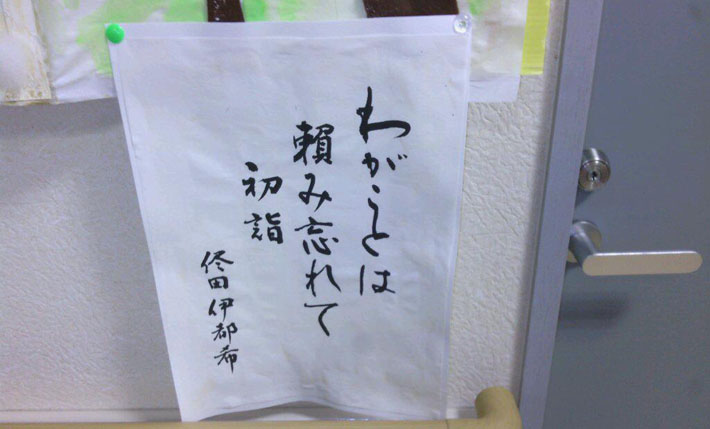 わがことは
頼み忘れて
初詣
佟田伊都希